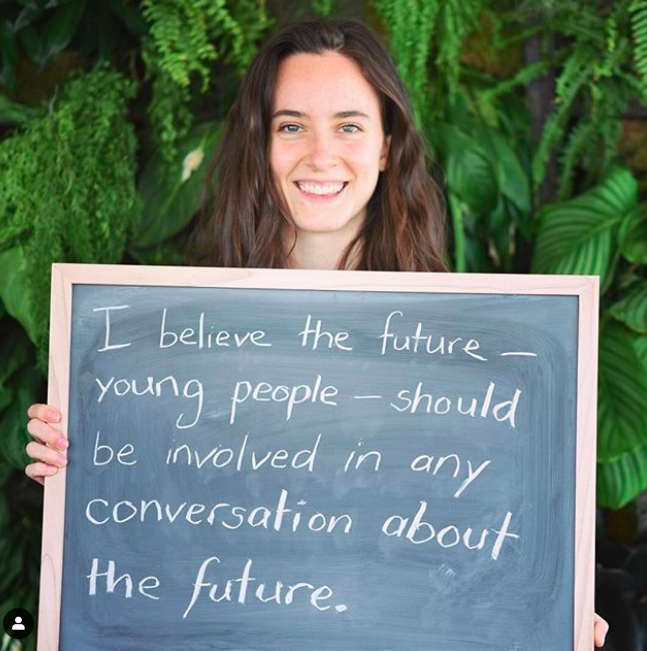 I believe the future —
young people — should
be involved in any
conversation about
the future.